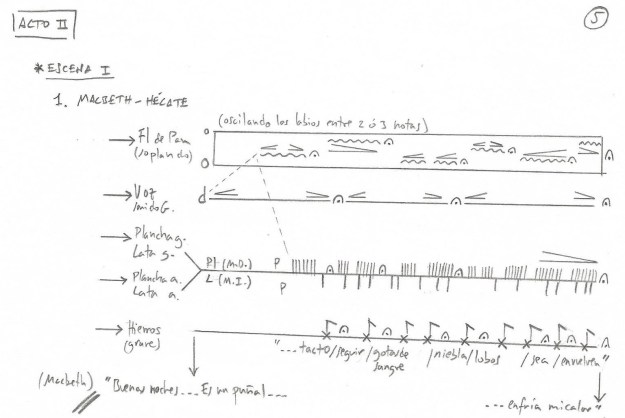 ACTO II
5
* ESCENA I
1. MACBETH-HÉCATE
(oscilando los labios entre 2 ó 3 notas)
Fl de Pan
(soplando)
Voz
Plancha g.
Lata g.
Pl (M.D.) P
Plancha a.
L (M.I.) P
Lata a.
Hierros
(graves)
"...tacto/seguir/gotas de sangre /niebla/lobos /sea/envuelven"
(Macbeth) "Buenas noches...Es un puñal---
...enfría mi calor"